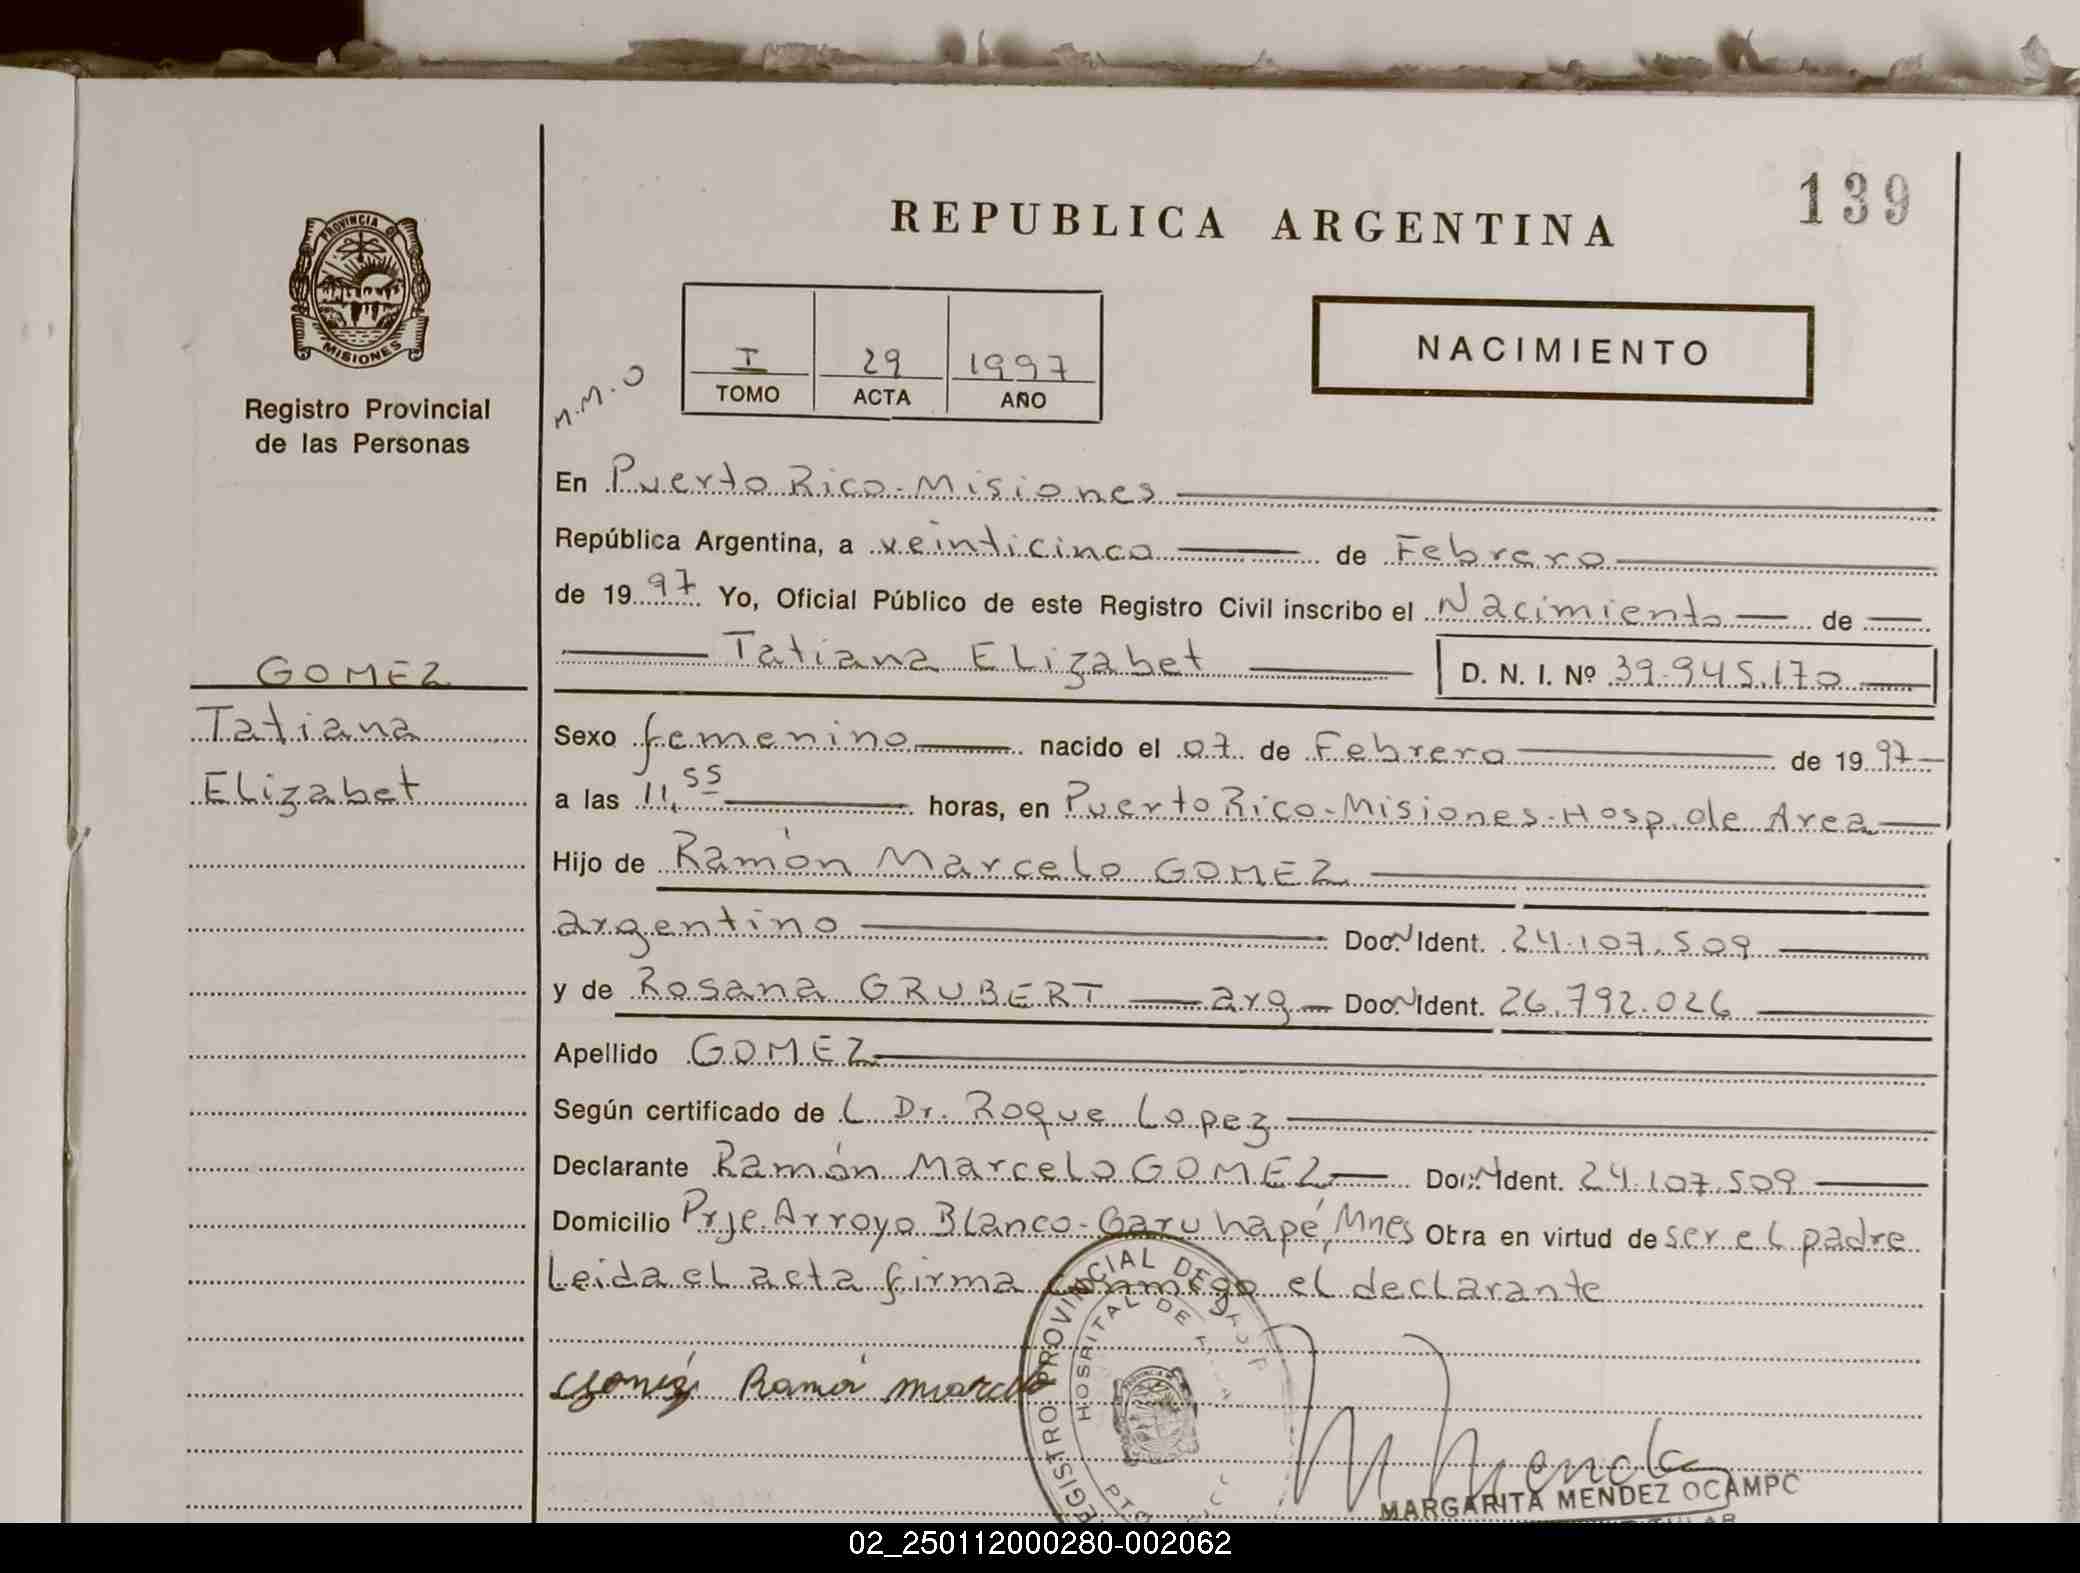 139
REPUBLICA ARGENTINA
PROVINCIA DE
MISIONES
Registro Provincial
de las Personas
I 29 1997
TOMO ACTA AÑO
NACIMIENTO
M.M.O
En Puerto Rico-Misiones
República Argentina, a veinticinco de Febrero
de 1997 Yo, Oficial Público de este Registro Civil inscribo el Nacimiento de
Tatiana Elizabet D. N. I. Nº 39.945.170
GOMEZ
Tatiana
Elizabet
Sexo femenino nacido el 07 de Febrero de 1997
a las 11,55 horas, en Puerto Rico-Misiones-Hosp. de Area
Hijo de Ramón Marcelo GOMEZ
argentino Doc. N Ident. 24.107.509
y de Rosana GRUBERT arg Doc. N Ident. 26.792.026
Apellido GOMEZ
Según certificado de L Dr. Roque Lopez
Declarante Ramón Marcelo GOMEZ Doc. N Ident. 24.107.509
Domicilio Prje. Arroyo Blanco-Garuhapé, Mnes Obra en virtud de ser el padre
Leida el acta firma conmigo el declarante
REGISTRO PROVINCIAL DE
HOSPITAL DE
PTO
Ramón
MARGARITA MENDEZ OCAMPO
02_250112000280-002062